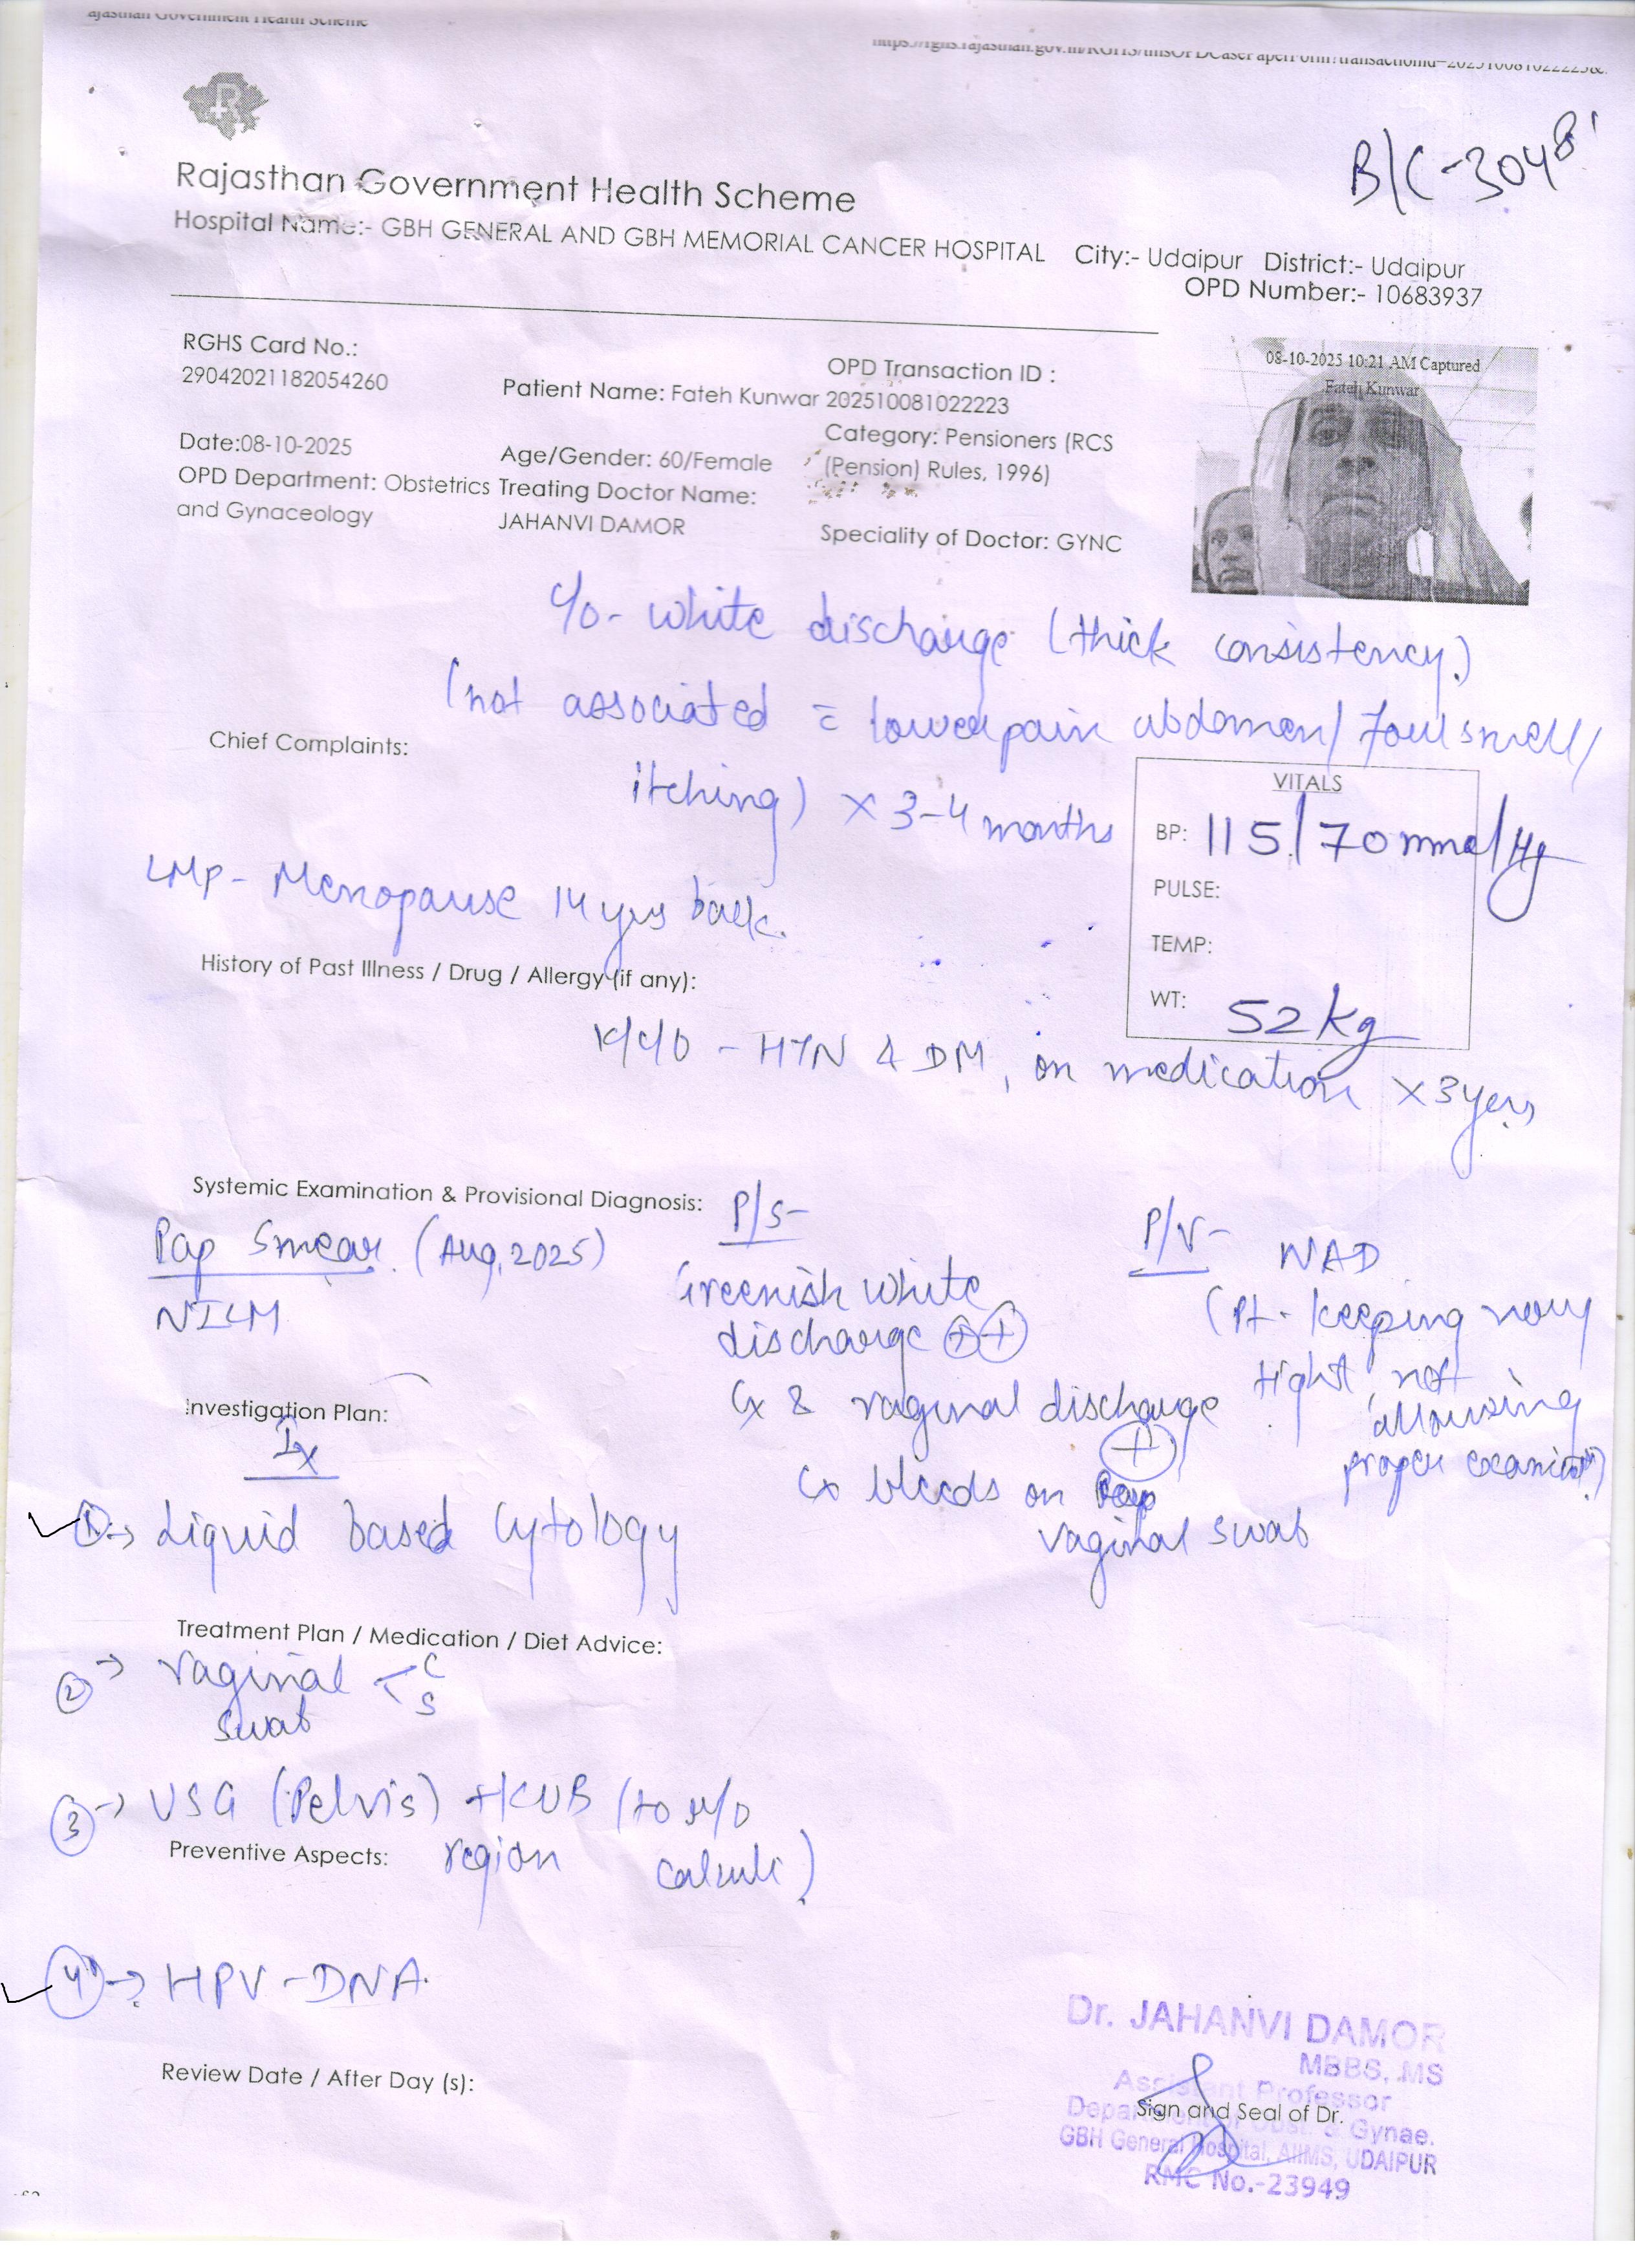 ajasthan Government Health Scheme
https://rghs.rajasthan.gov.in/RGHS/tmsOPDCasePaperForm?transactionid=202510081022223&
B/C-3048
Rajasthan Government Health Scheme
Hospital Name:- GBH GENERAL AND GBH MEMORIAL CANCER HOSPITAL City:- Udaipur District:- Udaipur
OPD Number:- 10683937
RGHS Card No.:
29042021182054260
Patient Name: Fateh Kunwar
OPD Transaction ID :
202510081022223
08-10-2025 10:21 AM Captured
Fateh Kunwar
Date:08-10-2025
Age/Gender: 60/Female
Category: Pensioners (RCS
(Pension) Rules, 1996)
OPD Department: Obstetrics
and Gynaceology
Treating Doctor Name:
JAHANVI DAMOR
Speciality of Doctor: GYNC
c/o- white discharge (thick consistency)
(not associated = lower pain abdomen/ foul smell/
Chief Complaints:
itching) x 3-4 months
VITALS
BP: 115/70 mmol/Hg
PULSE:
TEMP:
WT: 52 kg
LMP- Menopause 14 yrs back.
History of Past Illness / Drug / Allergy (if any):
K/c/o - HTN & DM, on medication x 3 yers
Systemic Examination & Provisional Diagnosis:
Pap Smear (Aug, 2025)
NILM
P/S-
Greenish white
discharge ++
Cx & vaginal discharge
+
Cx bleeds on
vaginal swab
P/V- NAD
(Pt. keeping very
tight not
allowing
proper examinatn)
Investigation Plan:
Ix
1→ Liquid based Cytology
Treatment Plan / Medication / Diet Advice:
2→ vaginal < C
S
swab
3→ USG (Pelvis) + KUB (to r/o
Preventive Aspects: region calculi)
4→ HPV-DNA
Review Date / After Day (s):
Dr. JAHANVI DAMOR
MBBS, MS
Assistant Professor
Sign and Seal of Dr.
Department of Obst. & Gynae.
GBH General Hospital, AIIMS, UDAIPUR
RMC No.-23949